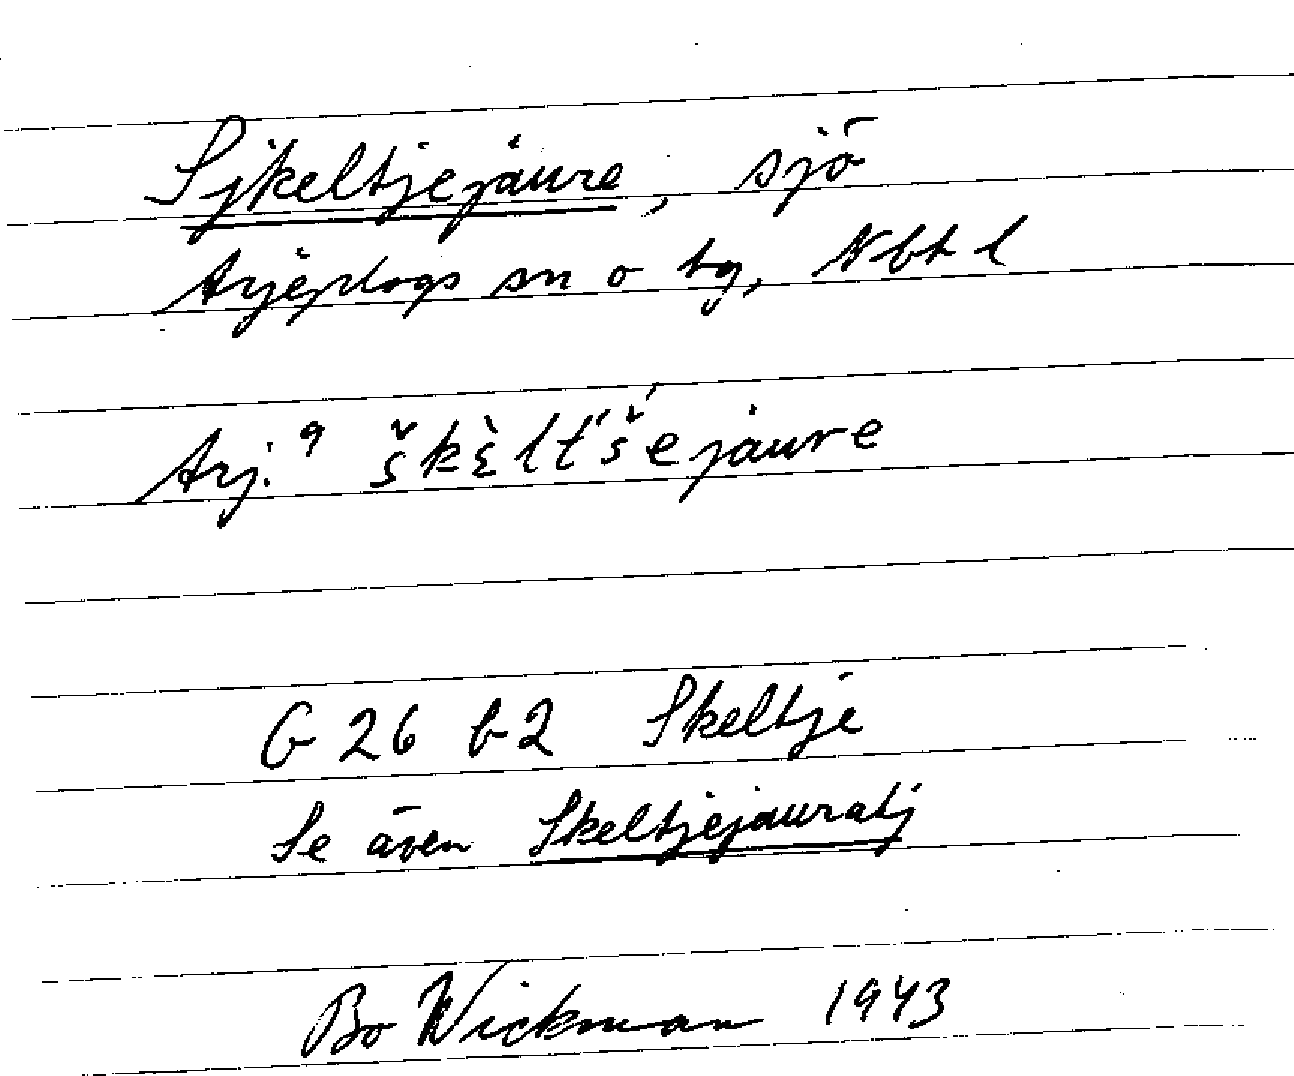 Sjkeltjejaure, sjö
Arjeplogs sn o tg, Nbt l
Arj. 9 škὲlt´š´ejaure
G 26 b2 Skeltje
Se även Skeltjejauratj
Bo Wickman 1943